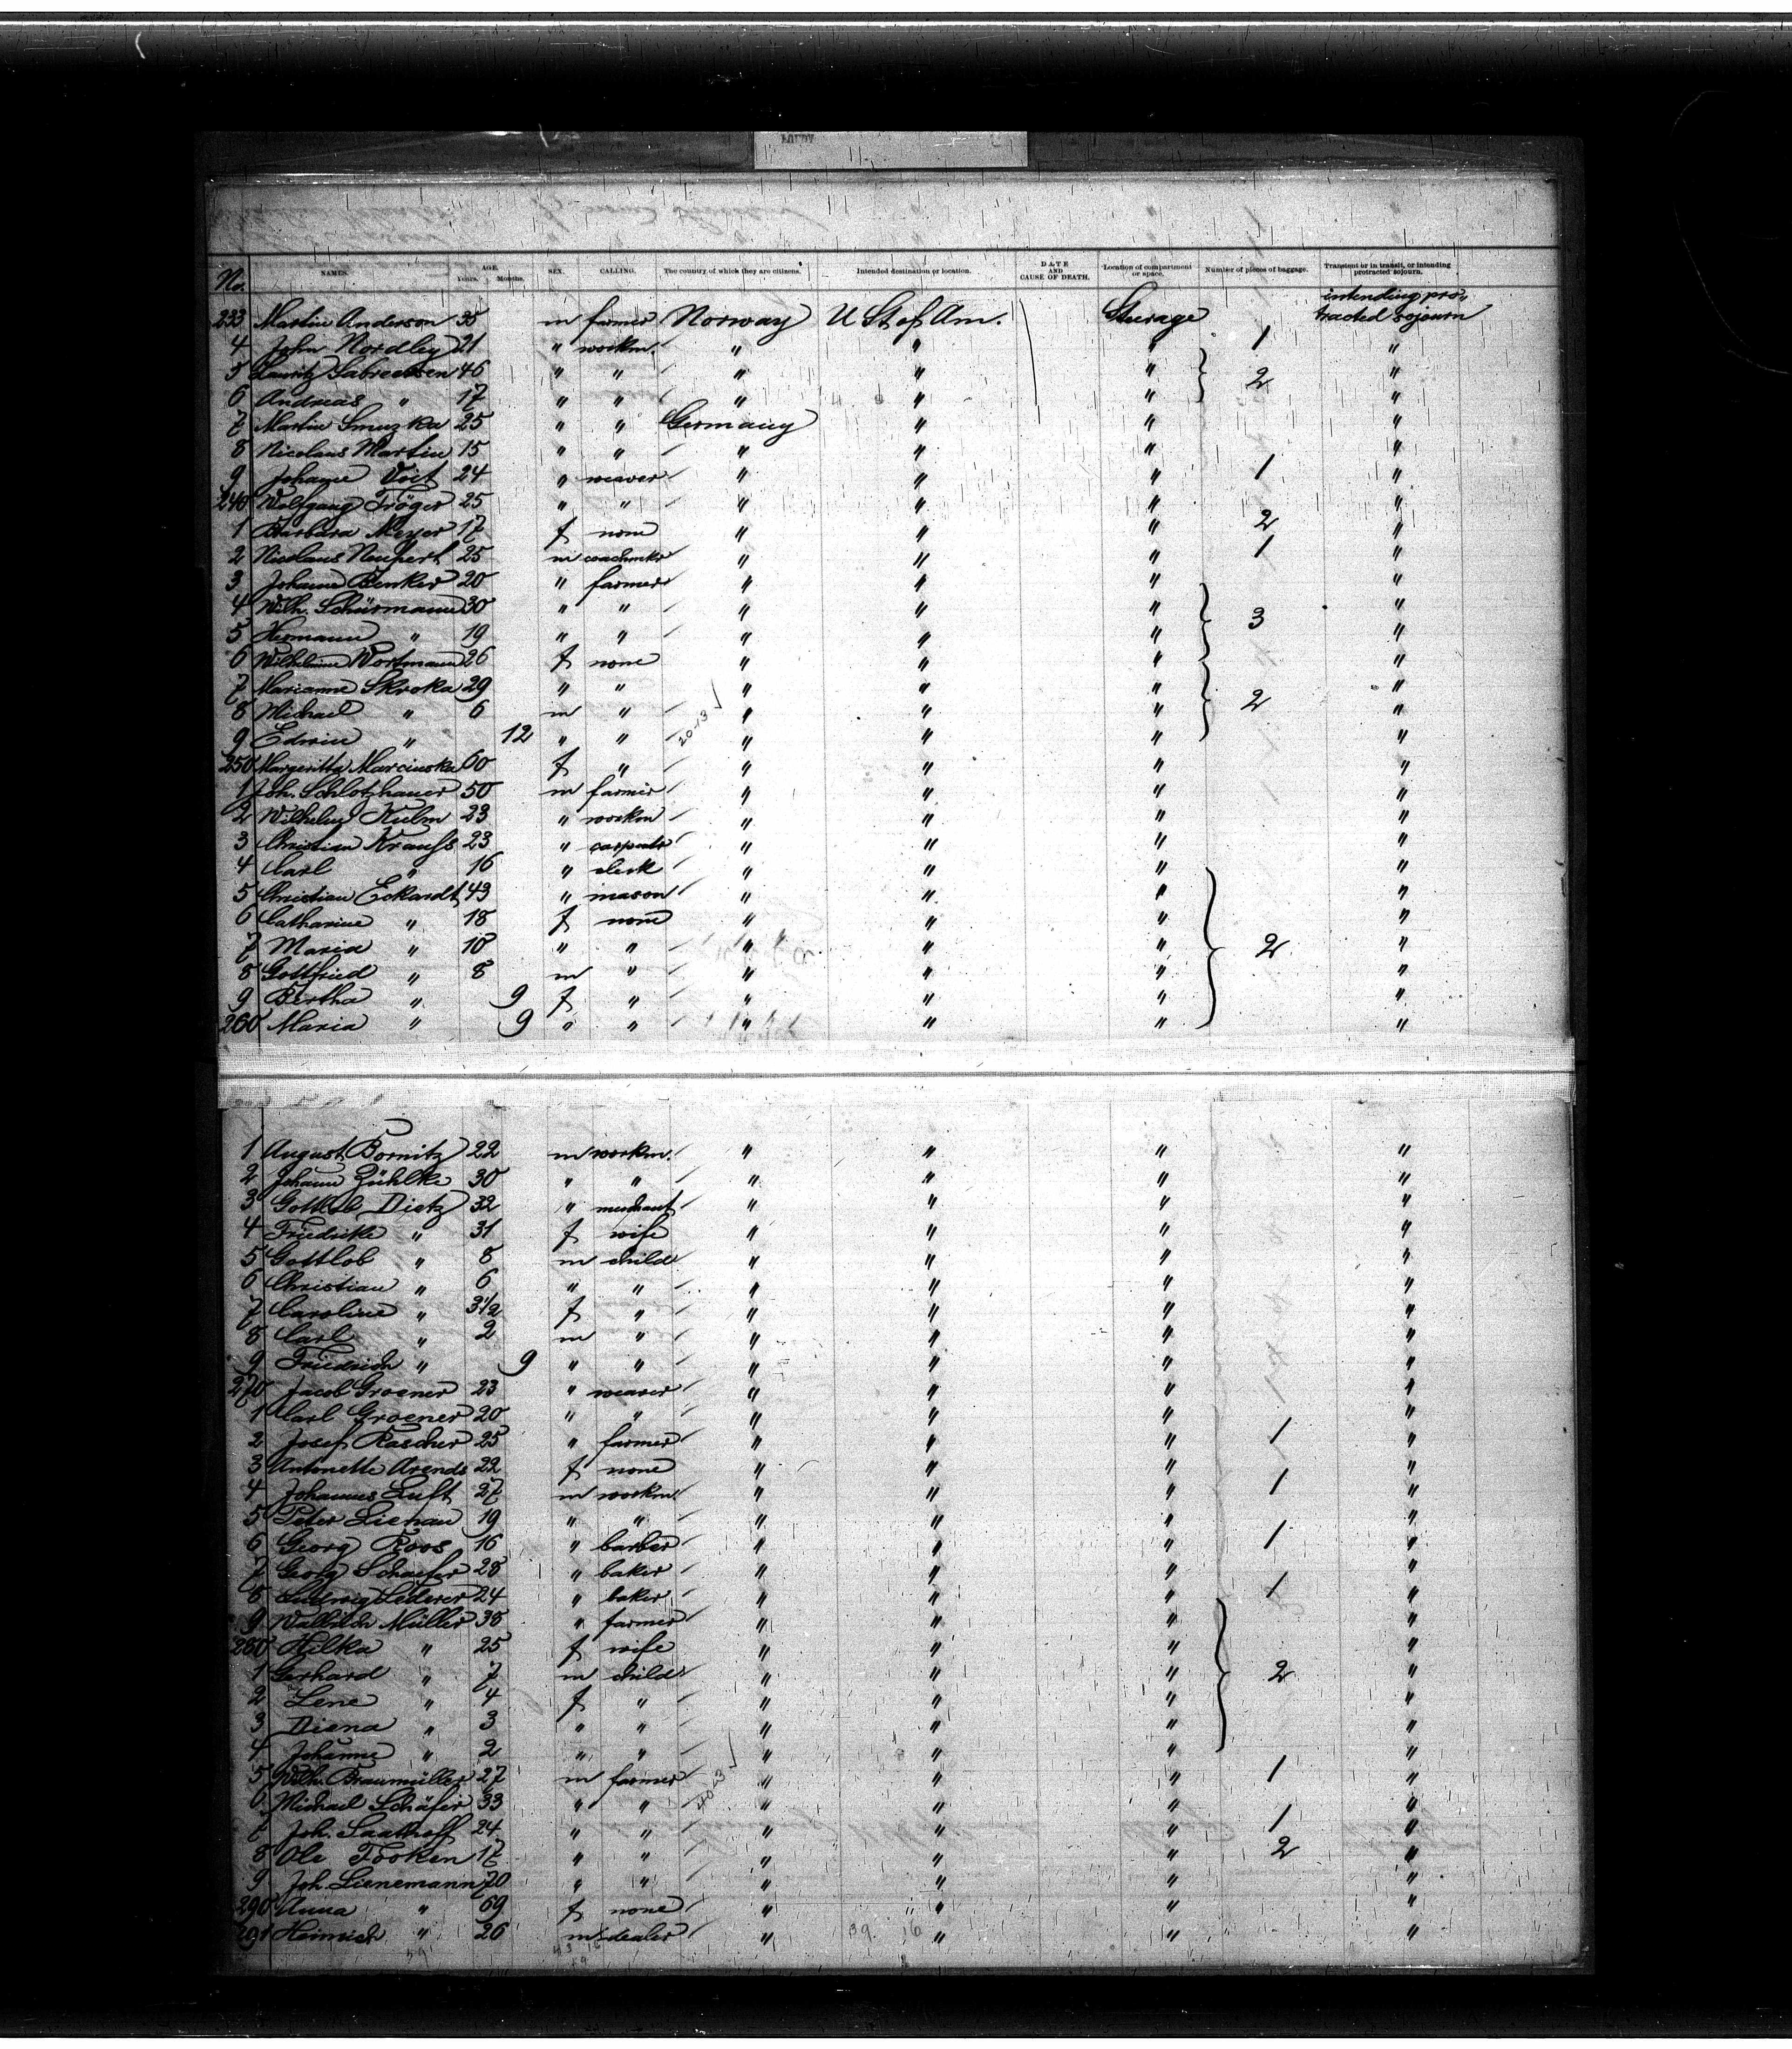 No. NAMES. AGE. Years. Months. SEX. CALLING. The country of which they are citizens. Intended destination or location. DATE AND CAUSE OF DEATH. Location of compartment or space. Number of pieces of baggage. Transient or in transit, or intending protracted sojourn.
233 Martin Anderson 35 m farmer Norway U St of Am. Steerage intending protracted sojourn
4 John Nordley 21 " workm. " " " 1 "
5 Lauritz 46 " " " " " 2 "
6 Andreas " 17 " " " " " "
7 Martin 25 " " Germany " " "
8 Nicolaus Martin 15 " " " " " "
9 Johann Voit 24 " weaver " " " 1 "
240 Wolfgang Tröger 25 " " " " " "
1 Barbara Meyer 17 f none " " " 2 "
2 Nicolaus Neupert 25 m coachmkr " " " 1 "
3 Johann Benker 20 " farmer " " " "
4 Wilh. Schürmann 30 " " " " " 3 "
5 Hermann " 19 " " " " " "
6 Wilhelmine Wortmann 26 f none " " " "
7 Marianne Skroka 29 " " " " " 2 "
8 Michael " 6 m " " " " "
9 Edwin " 12 " " 20-13 " " " "
250 Margeritta Marcinska 60 f " " " " "
1 Joh. Schlotzhauer 50 m farmer " " " "
2 Wilhelm Kulm 23 " workm " " " "
3 Christian Krauss 23 " carpentr " " " "
4 Carl " 16 " clerk " " " "
5 Christian Eckardt 43 " mason " " " 2 "
6 Catharine " 18 f none " " " "
7 Maria " 10 " " " " " "
8 Gottfried " 8 m " " " " "
9 Bertha " 9 f " " " " "
260 Maria " 9 " " " " " "
1 August Bornitz 22 m workm. " " " "
2 Johann Zühlke 30 " " " " " "
3 Gottlob Dietz 32 " merchant " " " "
4 Friedrike " 31 f wife " " " "
5 Gottlob " 8 m child " " " "
6 Christian " 6 " " " " " "
7 Caroline " 3 1/2 f " " " " "
8 Carl " 2 m " " " " "
9 Friedrich " 9 " " " " " "
270 Jacob Groener 23 " weaver " " " "
1 Carl Groener 20 " " " " " "
2 Josef Rascher 25 " farmer " " " 1 "
3 Antonette Arends 22 f none " " " "
4 Johannes Luft 37 m workm. " " " 1 "
5 Peter Lienau 19 " " " " " "
6 Georg Roos 16 " barber " " " 1 "
7 Georg Schaefer 28 " baker " " " "
8 Ludwig Lederer 24 " baker " " " 1 "
9 Müller 38 " farmer " " " "
280 Hilka " 25 f wife " " " "
1 Gerhard " 7 m child " " " 2 "
2 Lene " 4 f " " " " "
3 Diena " 3 " " " " " "
4 Johanne " 2 " " " " " "
5 Wilh. Braunmüller 27 m farmer " " " 1 "
6 Michael Schäfer 33 " " " " " "
7 Joh. Saathoff 24 " " " " " 1 "
8 Ole Tooken 17 " " " " " 2 "
9 Joh. Lienemann 70 " " " " " "
290 Anna " 69 f none " " " "
291 Heinrich " 26 m dealer " " " "
39 16